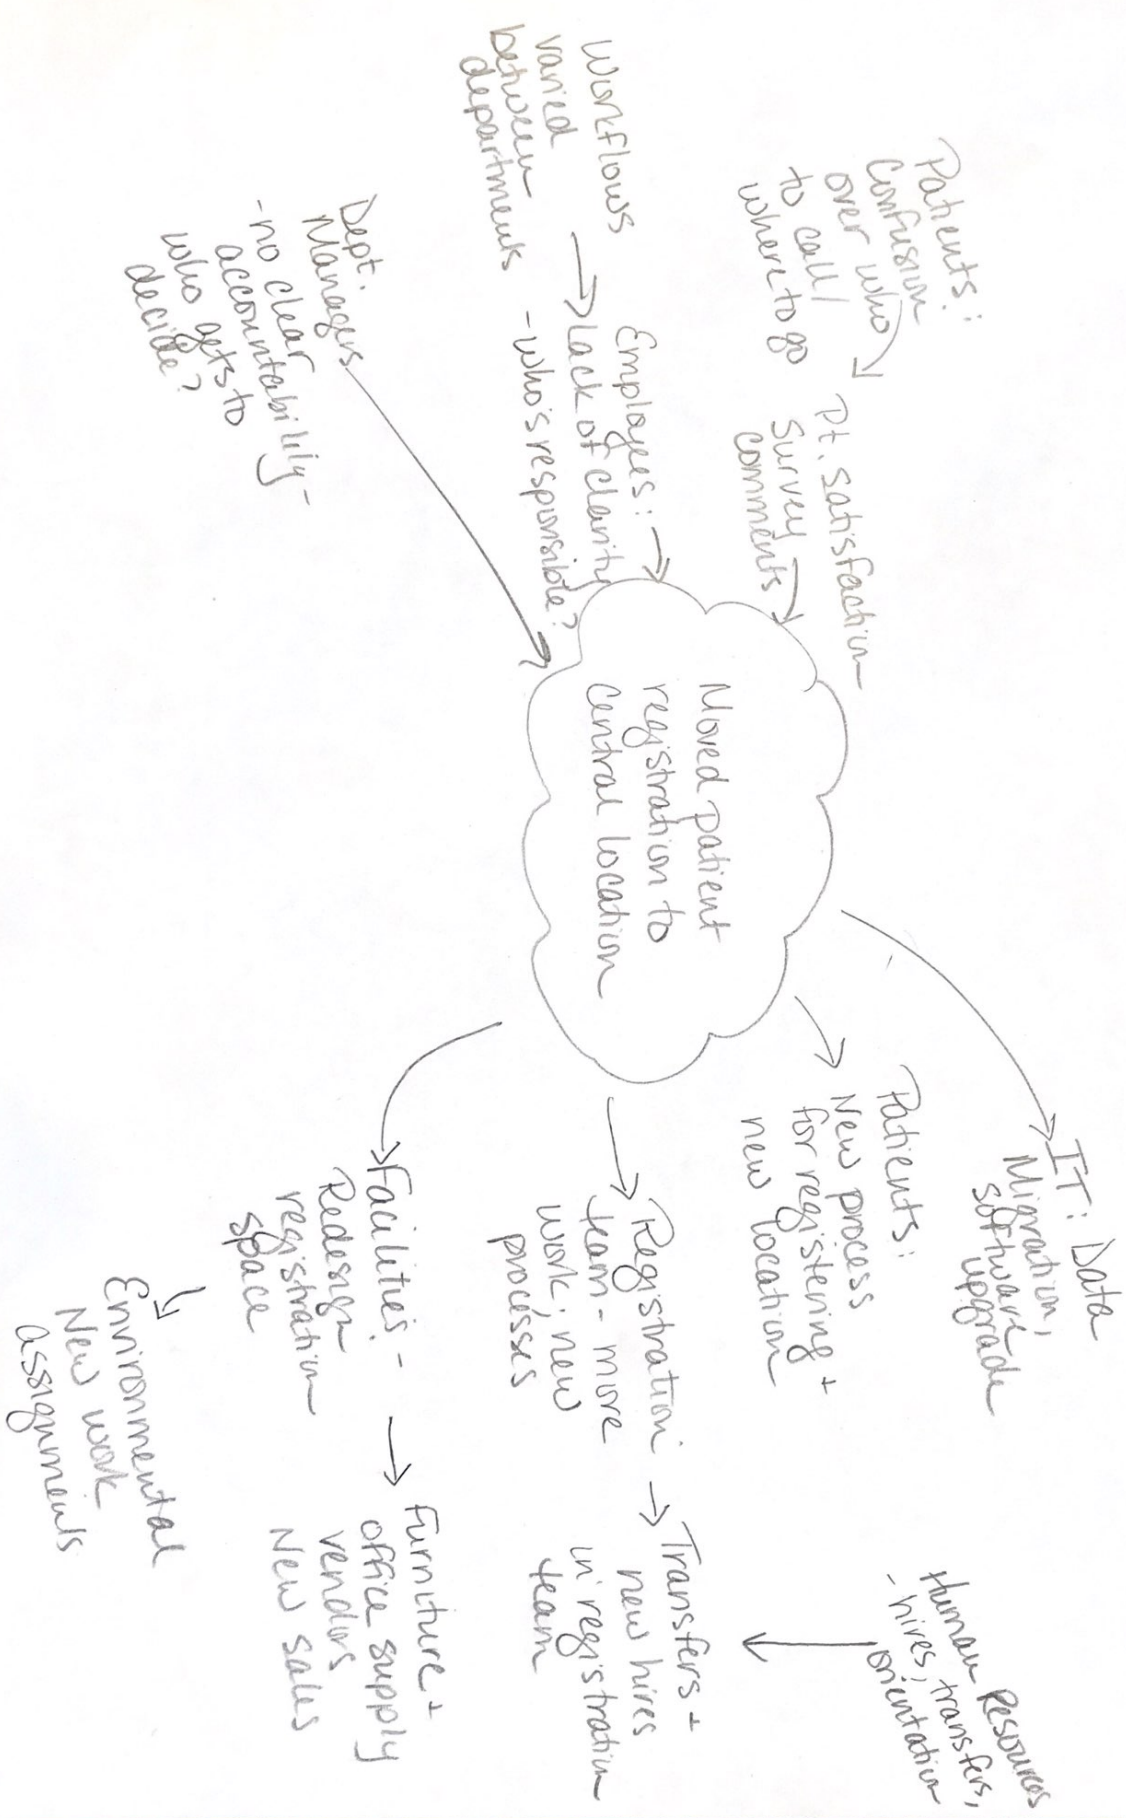 Patients:
Confusion
over who
to call/
where to go
Pt. satisfaction
survey
comments
Workflows
varied
between
departments
Employees:
Lack of clarity
- who's responsible?
Dept.
Managers
- no clear
accountability -
who gets to
decide?
Moved patient
registration to
central location
IT: Data
Migration,
software
upgrade
Patients:
New process
for registering +
new location
Registration:
team - more
work; new
processes
Transfers +
new hires
in registration
team
Human Resources
- hires, transfers,
orientation
Facilities -
Redesign
registration
space
Furniture +
office supply
vendors
New sales
Environmental
New work
assignments